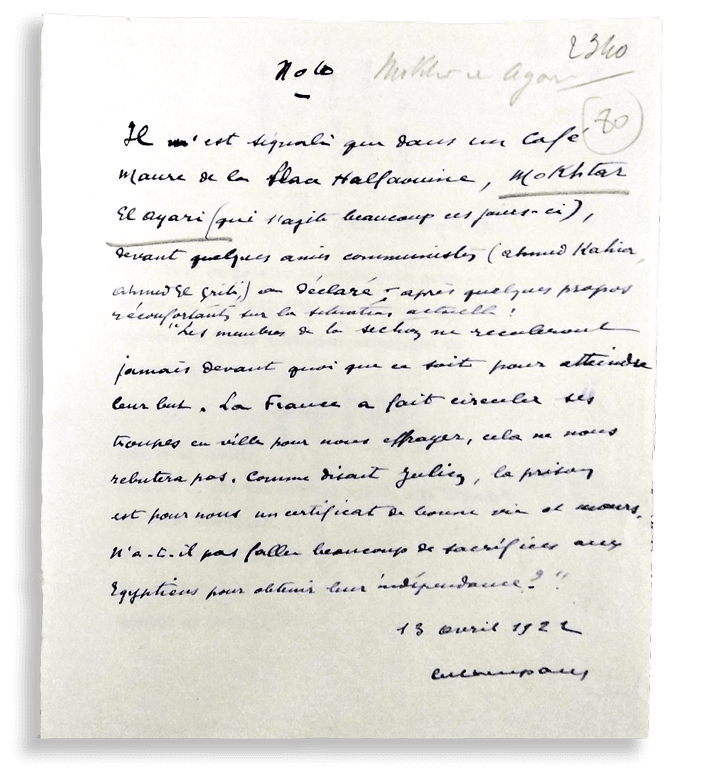 2340
Note Mokhtar Ayari
80
Il m'est signalé que dans un Café
Maure de la Place Halfaouine, Mokhtar
El Ayari (qui s'agite beaucoup ces jours-ci),
devant quelques amis communistes (Ahmed Kahia,
Ahmed El Griti,) a déclaré - après quelques propos
réconfortants sur la situation actuelle :
"Les membres de la section ne reculeront
jamais devant quoi que ce soit pour atteindre
leur but. La France a fait circuler ses
troupes en ville pour nous effrayer, cela ne nous
rebutera pas. Comme disait Julien, la prison
est pour nous un certificat de bonne vie et mœurs.
N'a-t-il pas fallu beaucoup de sacrifices aux
Egyptiens pour obtenir leur indépendance ? "
13 avril 1922